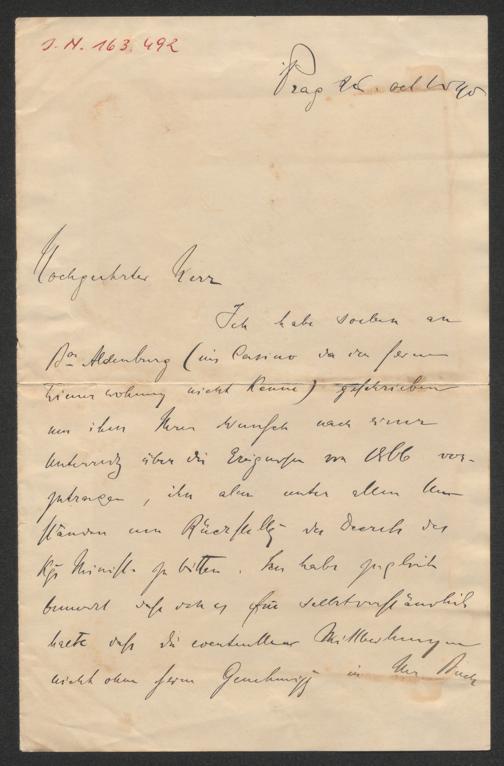 J. N. 163.492
Prag 26. oct 1890
Hochgeehrter Herr
Ich habe soeben an
Bon Aldenburg (ins Casino da ich seine
Wiener wohnung nicht kenne) geschrieben
um ihm Ihren Wunsch nach einer
Unterredg über die Ereignisse von 1866 vor-
zutragen, ihn aber unter allen Um-
ständen um Rückstellg des Decrets des
Kgs Minist. zu bitten. Ich habe zugleich
bemerkt daß ich es für selbstverständlich
halte daß die eventuellen Mittheilungen
nicht ohne seine Genehmigg in Ihr Buch